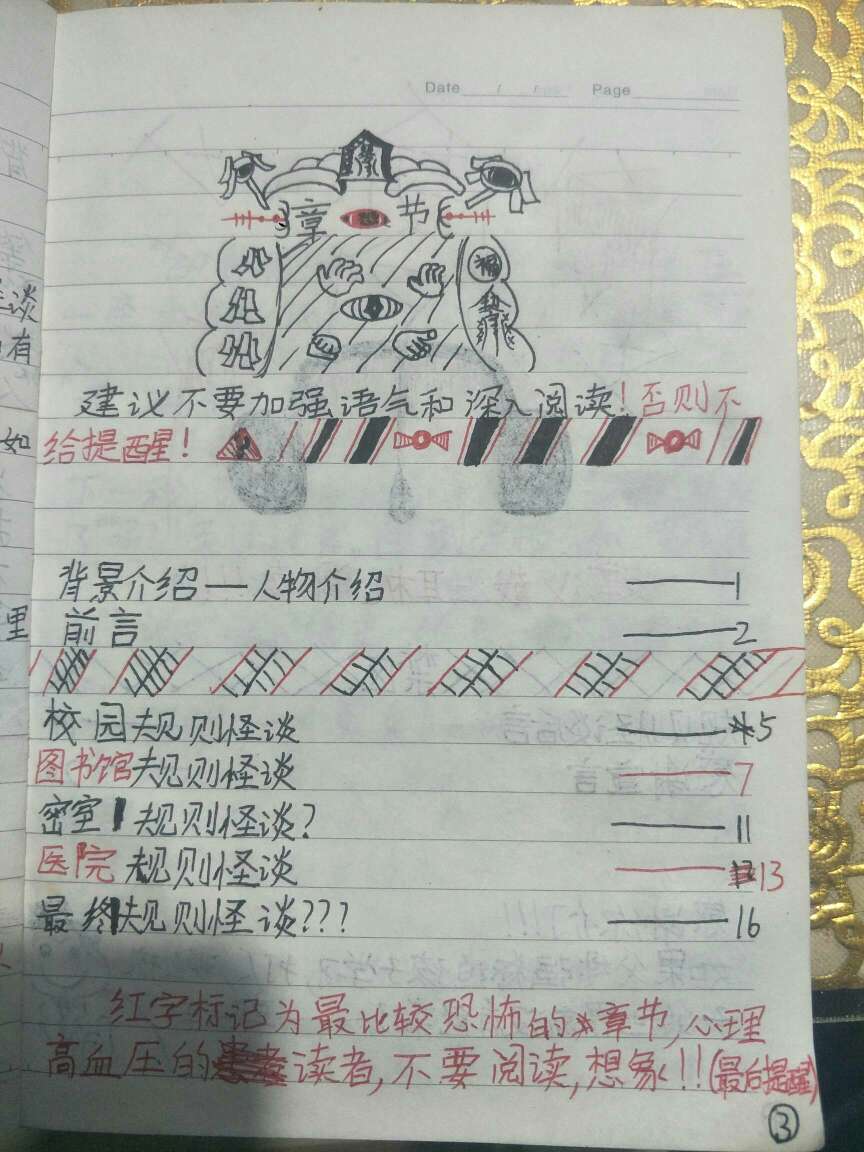 Date / / Page
章 节
建议不要加强语气和深入阅读!否则不
给提醒!
背景介绍——人物介绍 1
前言 2
校园规则怪谈 5
图书馆规则怪谈 7
密室规则怪谈? 11
医院规则怪谈 13
最终规则怪谈??? 16
红字标记为最比较恐怖的章节,心理
高血压的读者,不要阅读,想象!!(最后提醒)
③
谈
有
如
里